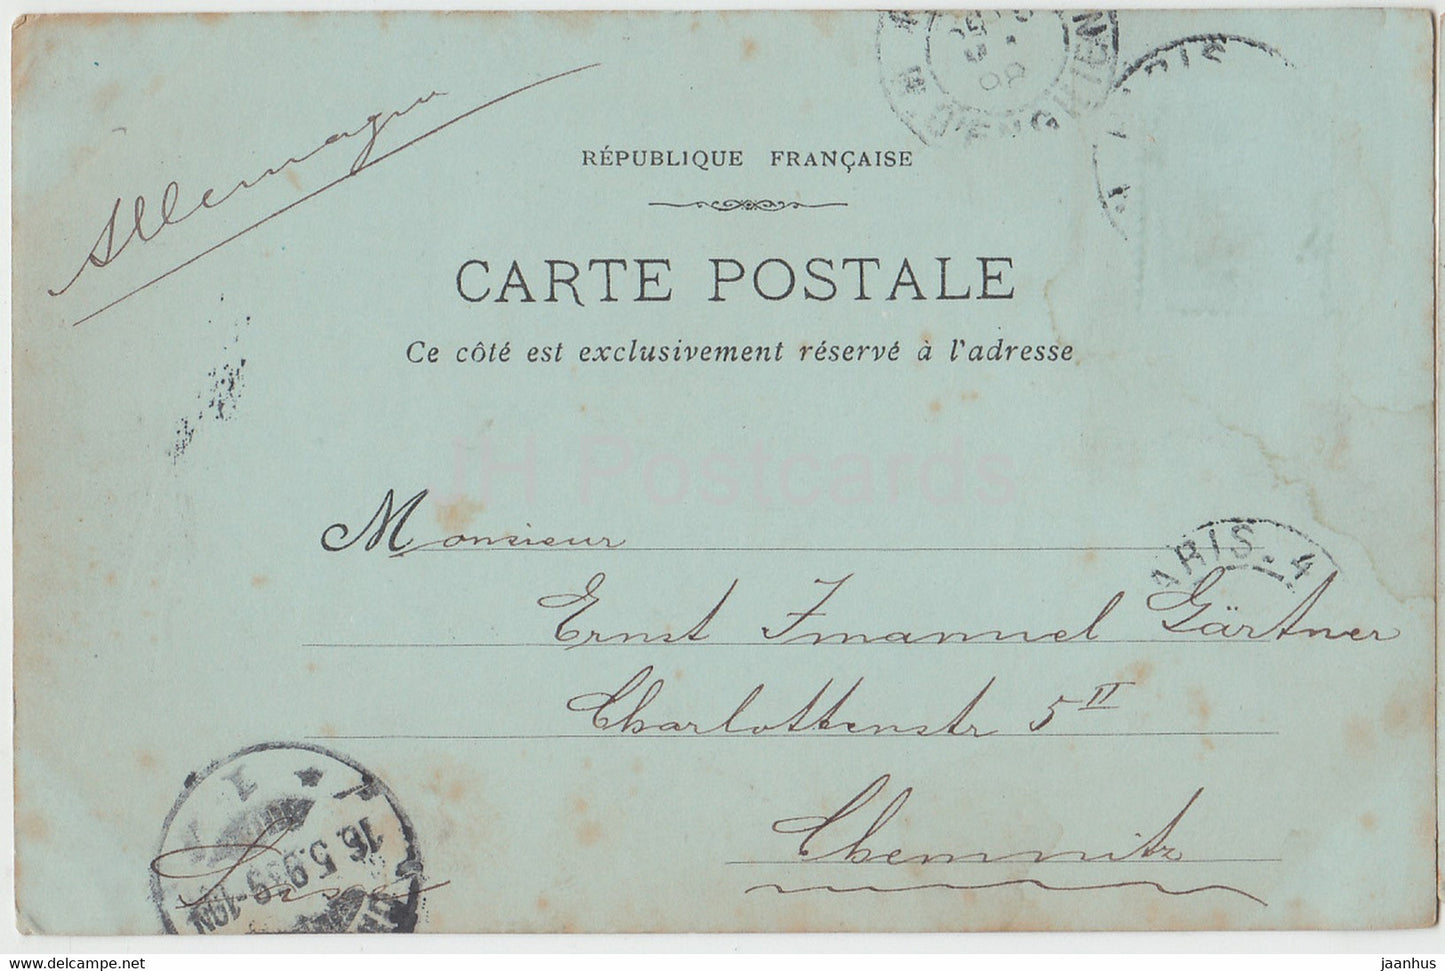 Allemagne
RÉPUBLIQUE FRANÇAISE
CARTE POSTALE
Ce côté est exclusivement réservé à l'adresse
JH Postcards
Monsieur
PARIS
D'ENGHIEN
ARIS. 4
Ernst Immanuel Gärtner
Charlottenstr 5 II
Chemnitz
16.5.99
www.delcampe.net
jaanhus